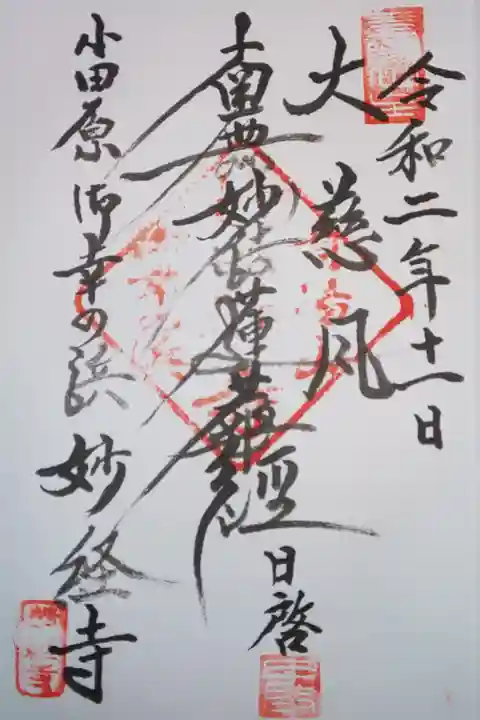 令和二年十一日
大慈風
南無妙法蓮華経
日啓
小田原御幸の浜 妙経寺